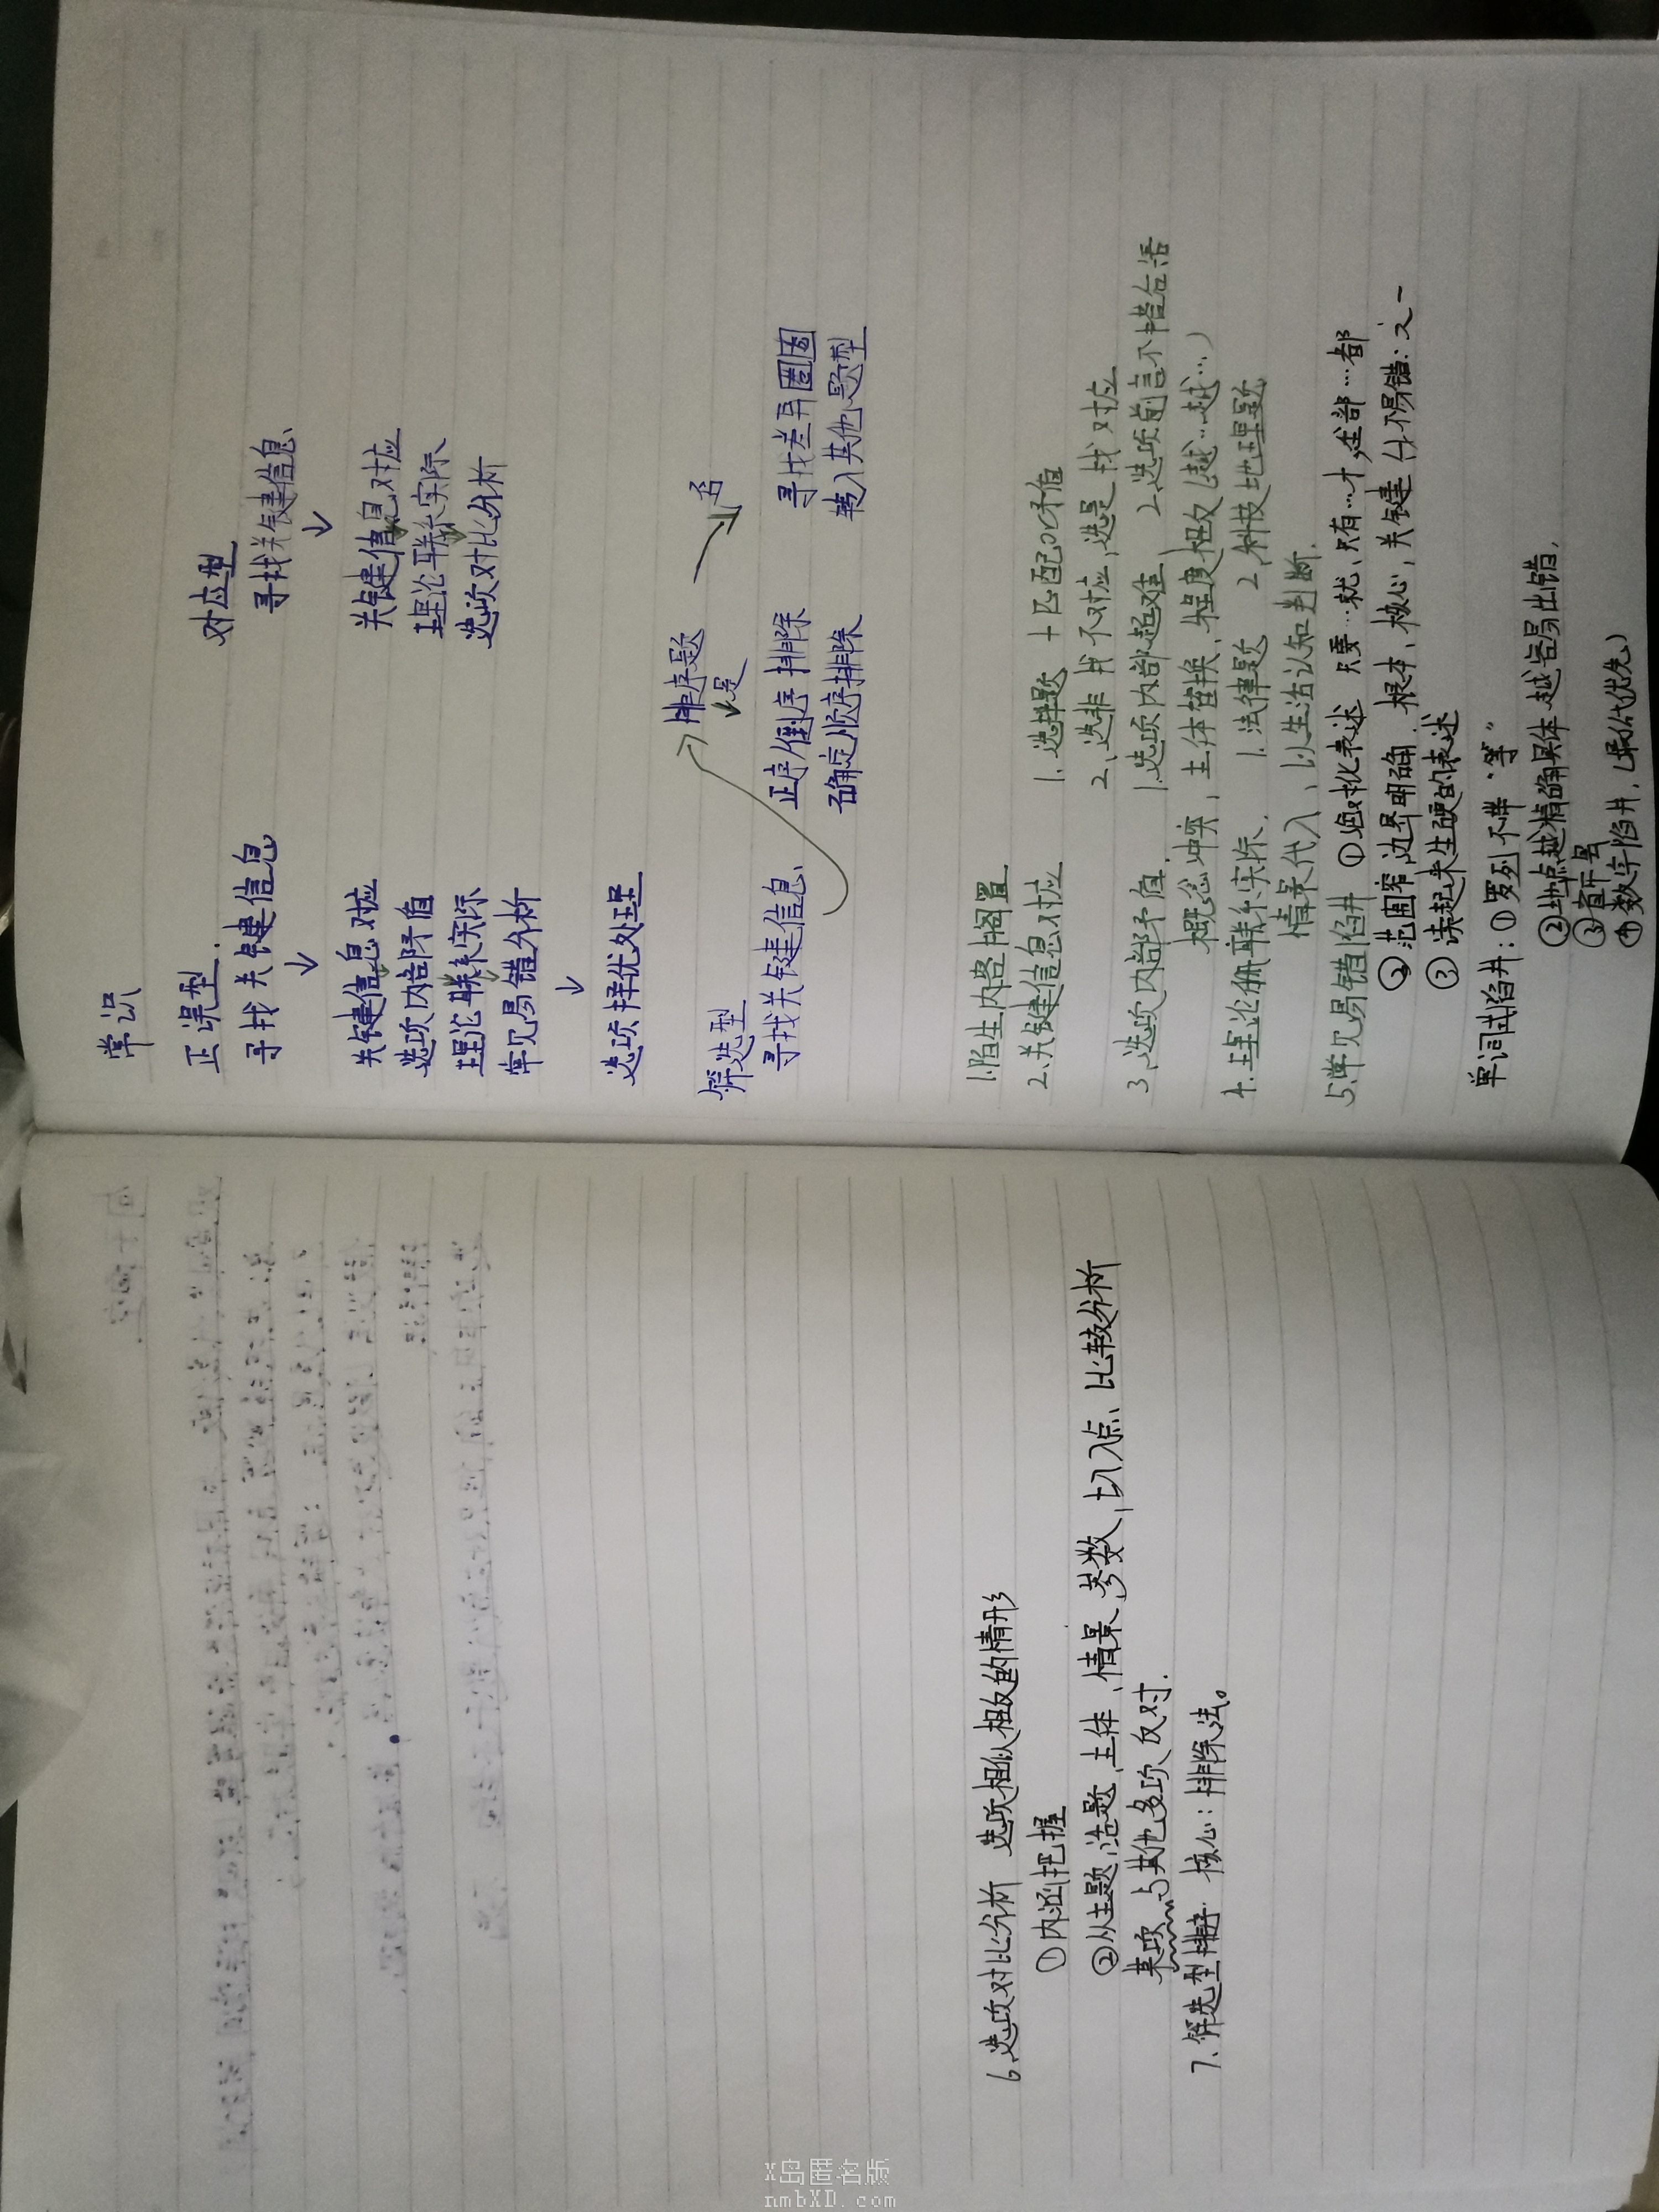 常识
正误型:
寻找关键信息
↓
关键信息对应
选项内部矛盾
理论联系实际
常见易错分析
↓
选项择优处理
对应型
寻找关键信息、
↓
关键信息对应
理论联系实际
选项对比分析
筛选型
寻找关键信息、
排序题
是
否
正序/倒序排除
确定顺序排除
寻找差异圈圈
转入其他题型
1.陌生内容搁置
2.关键信息对应
1.选择题 + 匹配or矛盾
2、选非找不对应,选是找对应
3、选项内部矛盾. 1.选项内部超难 2、选项前言不搭后语
概念冲突,主体替换、程度相反(越…越…)
4.理论联系实际. 1.法律题 2、科技地理题
情景代入、以生活认知判断.
5.常见易错陷井 ①绝对化表述 只要…就、只有…才,全部…都
②范围窄,边界明确. 根本、核心,关键(不易错:之一
③读起来生硬的表述
单词式陷井:①罗列不带“等”
②地点越精确具体越容易出错.
③
④数字陷井,(最优先)
6、选项对比分析 选项相似相反的情形
①内涵把握
②从主题,话题、主体、情景、参数、切入点、比较分析
某项与其他多项反对.
7、筛选型 核心:排除法。
X岛匿名版
nmbXD.com